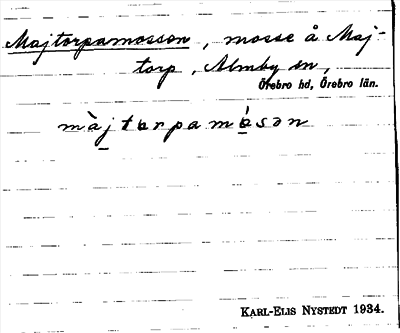 Majtorpamossen, mosse å Maj-
torp, Almby sn,
Örebro hd, Örebro län.
màjtɷrpamósən
KARL-ELIS NYSTEDT 1934.